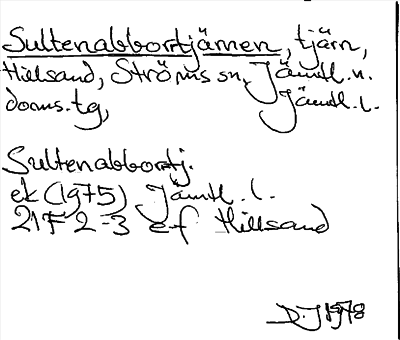 Sultenabborrtjärnen, tjärn,
Hillsand, Ströms sn, Jämtl. n.
doms.tg, Jämtl. l.
Sultenabbortj.
ek (1975) Jämtl. l.
21F 2-3 ef Hillsand
D.J 1978